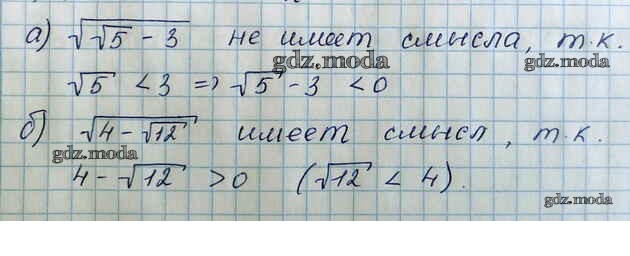 а) √(√5 - 3) не имеет смысла, т.к.
gdz.moda
gdz.moda
√5 < 3 => √5 - 3 < 0
б) √(4 - √12) имеет смысл, т.к.
gdz.moda
4 - √12 > 0 (√12 < 4).
gdz.moda